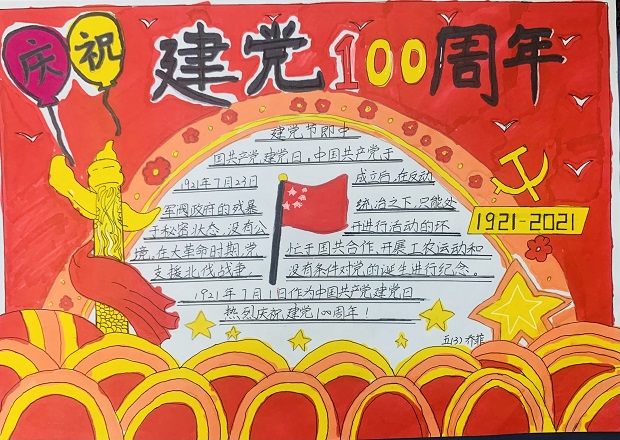 庆祝
建党100周年
建党节即中
国共产党建党日,中国共产党于
1921年7月23日 成立后,在反动
军阀政府的残暴 统治之下,只能处
于秘密状态,没有公 开进行活动的环
境,在大革命时期,党 忙于国共合作,开展工农运动和
支援北伐战争。 没有条件对党的诞生进行纪念。
1921年7月1日作为中国共产党建党日
热烈庆祝建党100周年!
1921-2021
五(3)乔菲